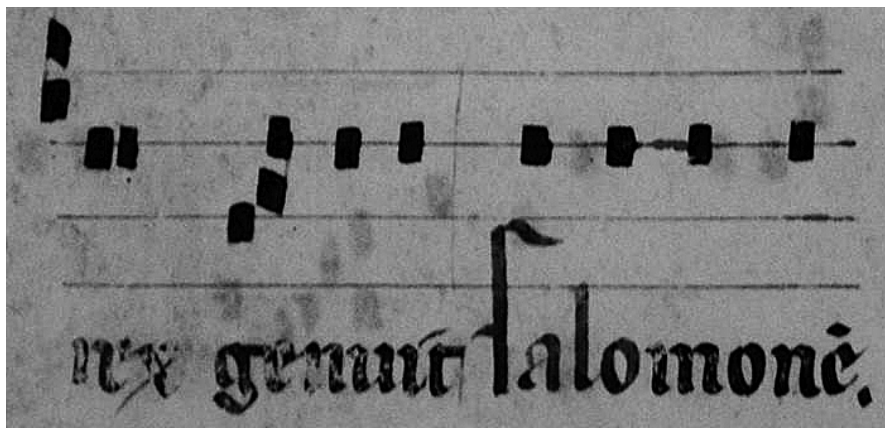 rex genuit ſalomonē.